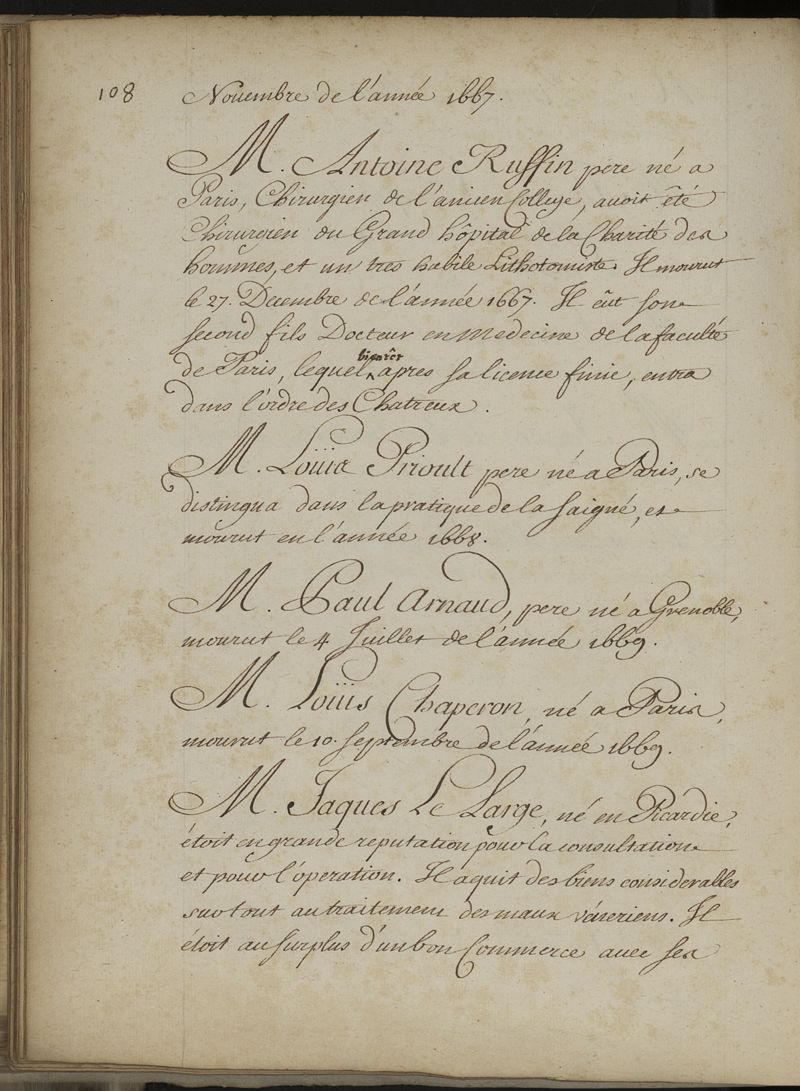 108 Novembre de l'année 1667.
M. Antoine Ruffin pere né a
Paris, Chirurgien de l'ancien College, avoit êté
Chirurgien du Grand hôpital de la Charité des
hommes, et un tres habile Lithotomiste. Il mourut
le 27. Decembre de l'année 1667. Il eût son
second fils Docteur en Medecine de la faculté
de Paris, lequel bientôt apres sa licence finie, entra
dans l'ordre des Chatreux.
M. Loüis Prioult pere né a Paris, se
distingua dans la pratique de la saigné, et
mourut en l'année 1668.
M. Paul Arnaud, pere né a Grenoble,
mourut le 4 Juillet de l'année 1669.
M. Loüis Chaperon, né a Paris,
mourut le 10. septembre de l'année 1669.
M. Jaques Le Large, né en Picardie,
étoit en grande reputation pour la consultation
et pour l'operation. Il aquit des biens considerables
sur tout au traitement des maux véneriens. Il
étoit au surplus d'un bon Commerce avec ses